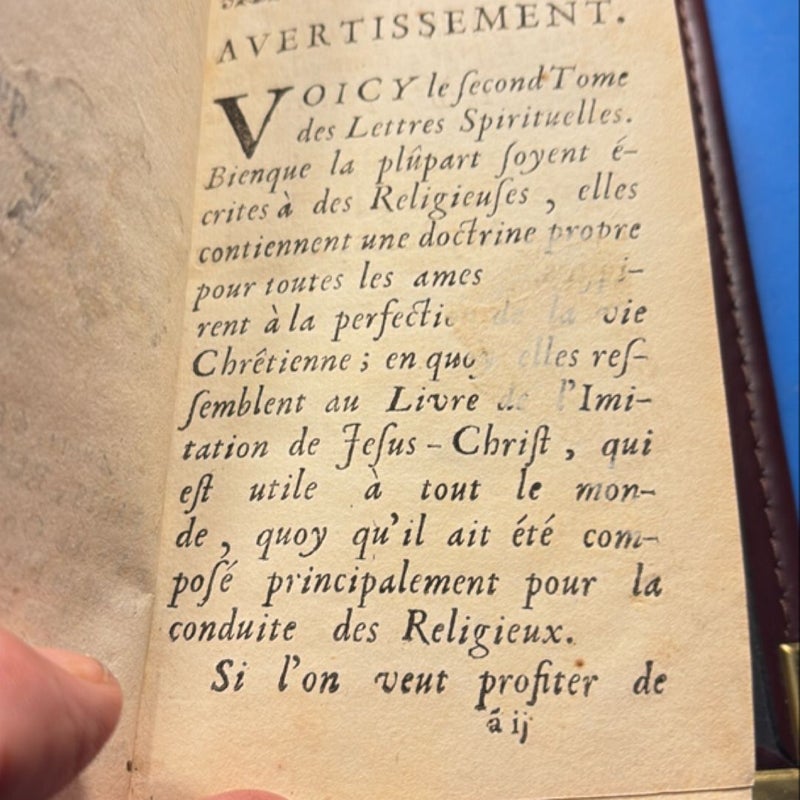 AVERTISSEMENT.
VOICY le ſecond Tome
des Lettres Spirituelles.
Bienque la plûpart ſoyent é-
crites à des Religieuſes, elles
contiennent une doctrine propre
pour toutes les ames
rent à la perfectio de la vie
Chrêtienne ; en quoy elles reſ-
ſemblent au Livre de l'Imi-
tation de Jeſus-Chriſt, qui
eſt utile à tout le mon-
de, quoy qu'il ait été com-
poſé principalement pour la
conduite des Religieux.
Si l'on veut profiter de
á ij